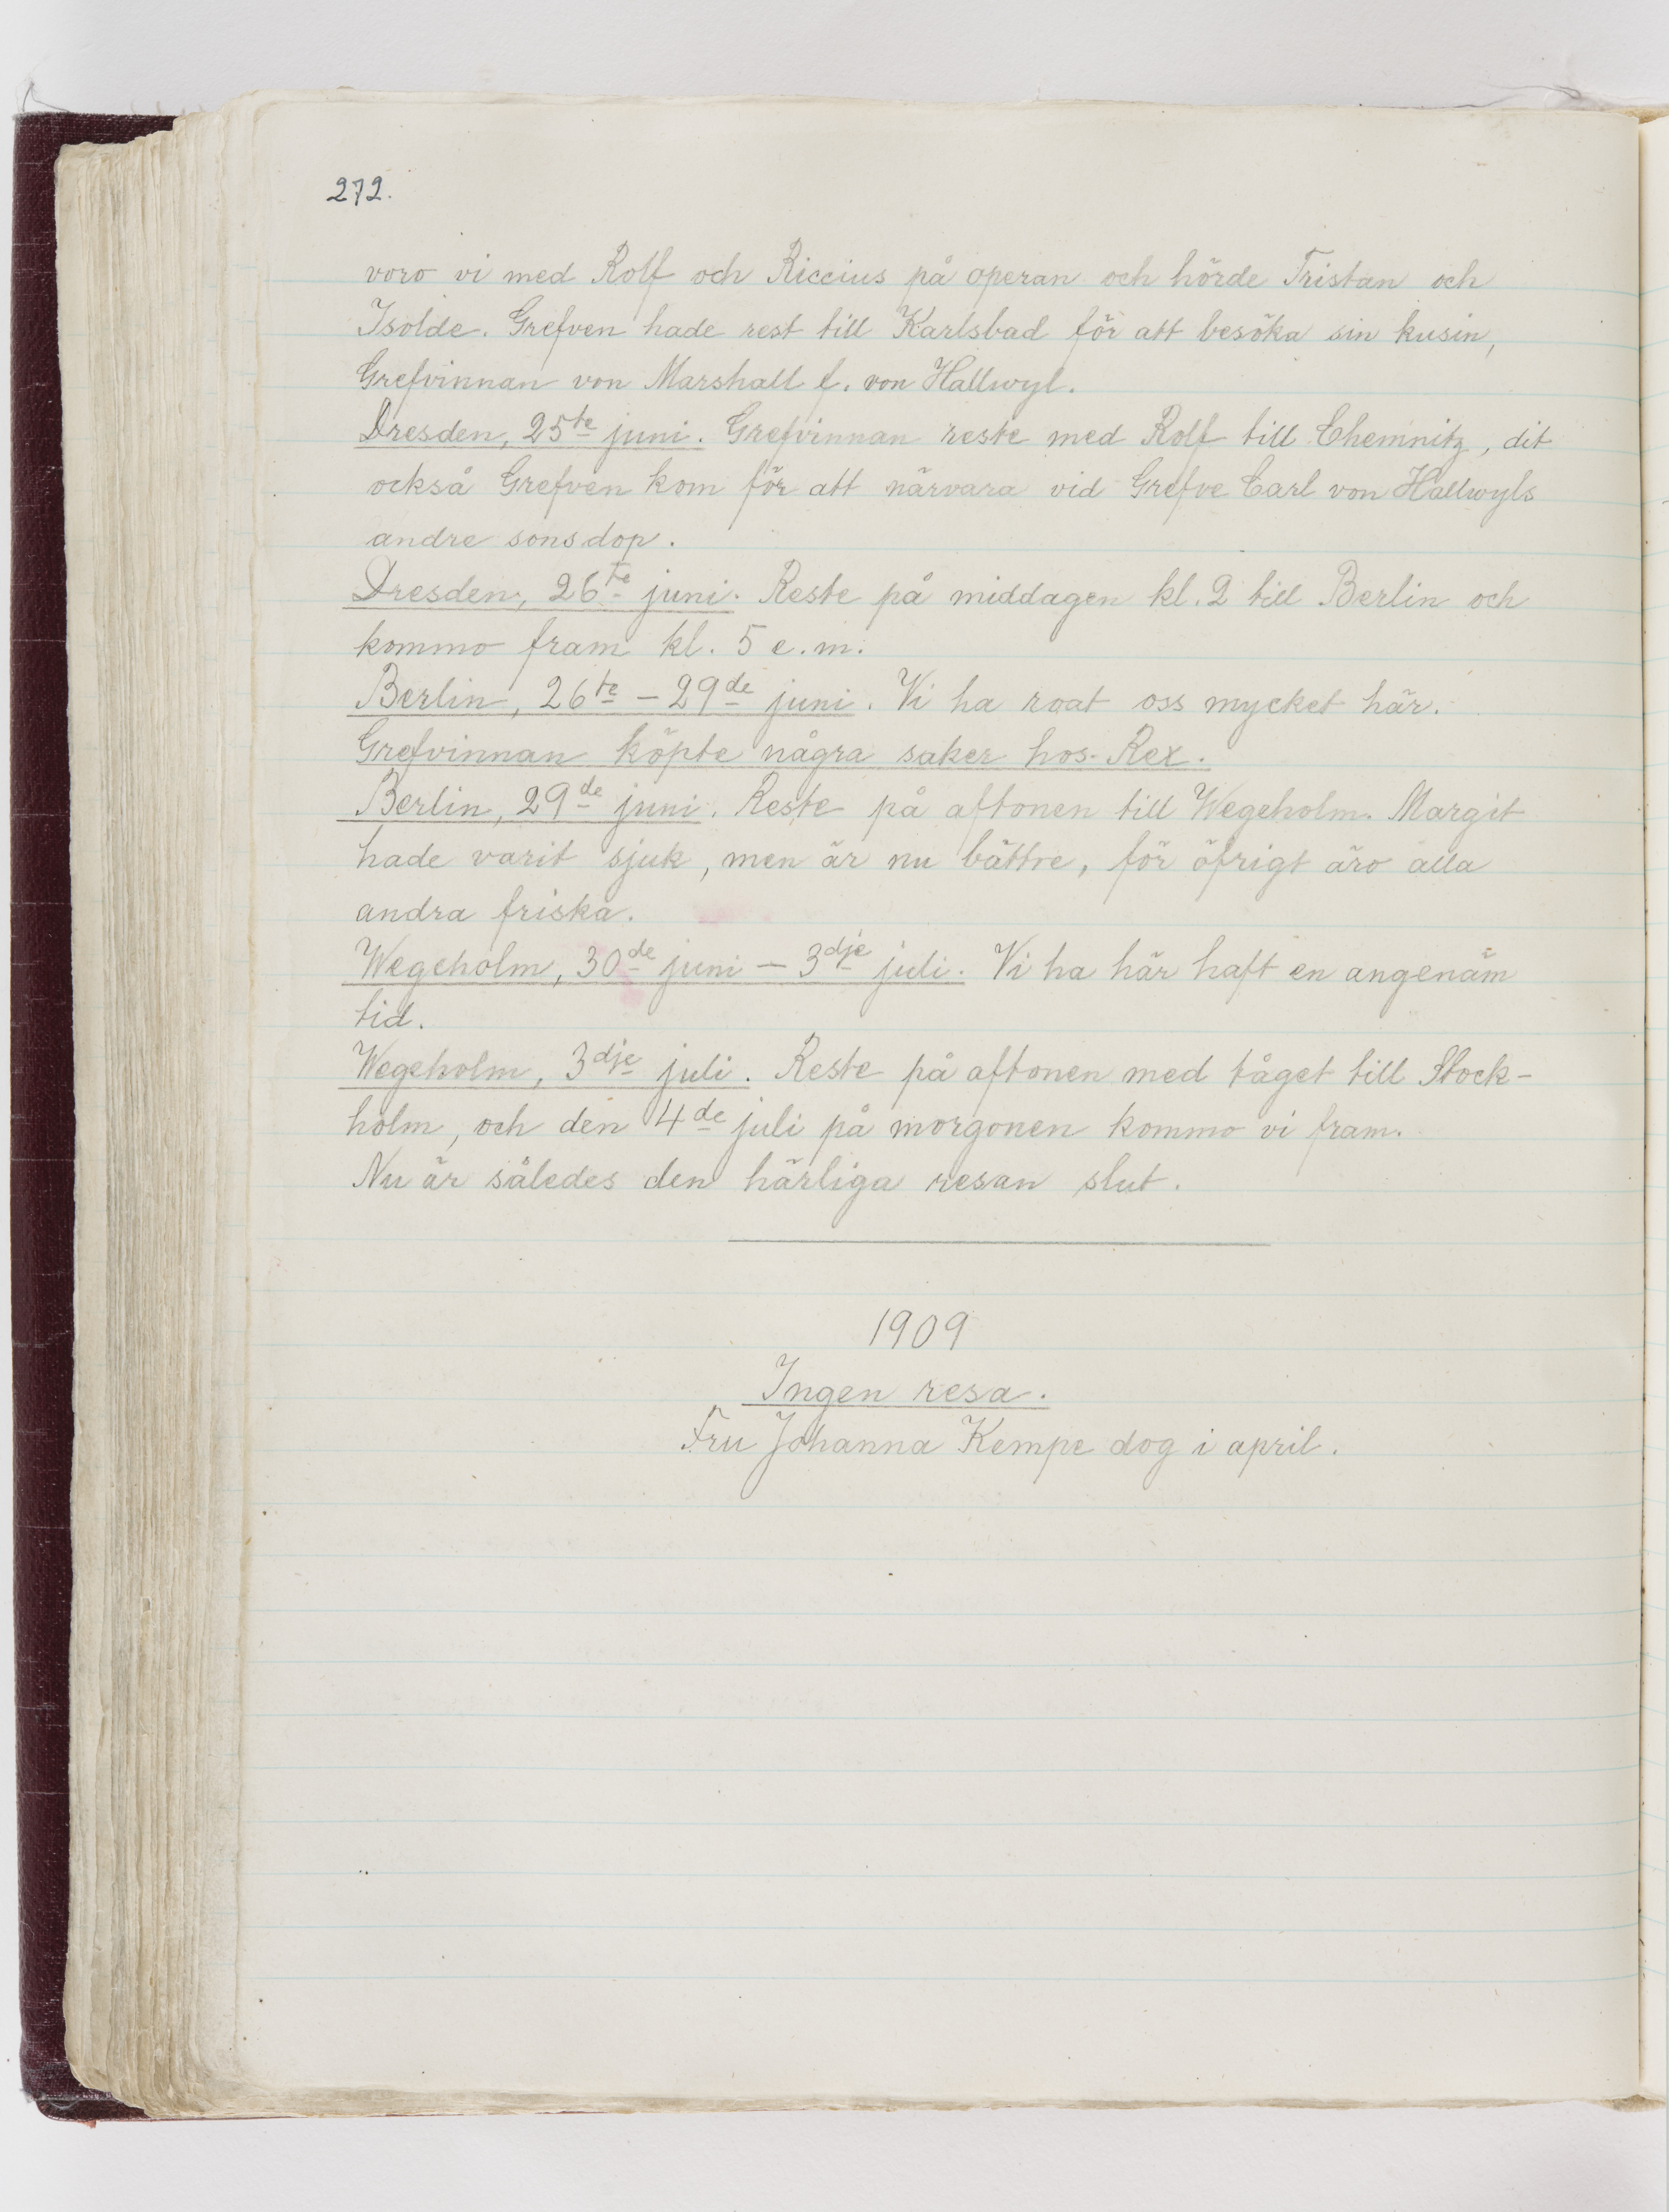 272.
voro vi med Rolf och Riccius på operan och hörde Tristan och
Isolde. Grefven hade rest till Karlsbad för att besöka sin kusin,
Grefvinnan von Marshall f. von Hallwyl.
Dresden, 25te juni. Grefvinnan reste med Rolf till Chemnitz, dit
också Grefven kom för att närvara vid Grefve Carl von Hallwyls
andre sons dop.
Dresden, 26te juni. Reste på middagen kl. 2 till Berlin och
kommo fram kl. 5 e.m.
Berlin, 26te – 29de juni. Vi ha roat oss mycket här.
Grefvinnan köpte några saker hos Rex.
Berlin, 29de juni. Reste på aftonen till Wegeholm. Margit
hade varit sjuk, men är nu bättre, för öfrigt äro alla
andra friska.
Wegeholm, 30de juni – 3dje juli. Vi ha här haft en angenäm
tid.
Wegeholm, 3dje juli. Reste på aftonen med tåget till Stock-
holm, och den 4de juli på morgonen kommo vi fram.
Nu är således den härliga resan slut.
1909
Ingen resa.
Fru Johanna Kempe dog i april.